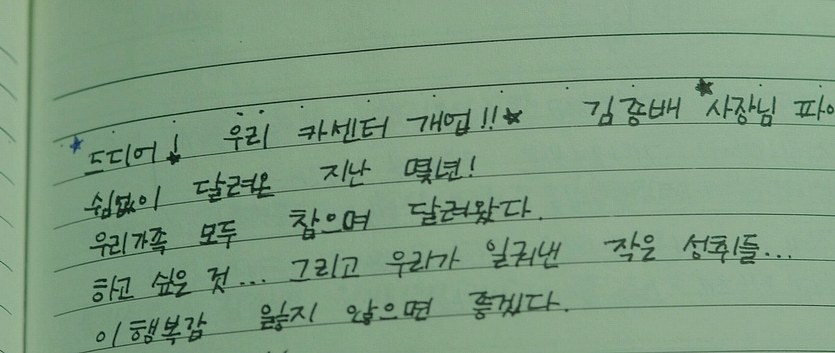 드디어! 우리 카센터 개업!! 김종배 사장님 파이
쉼없이 달려온 지난 몇년!
우리가족 모두 참으며 달려왔다.
하고 싶은 것... 그리고 우리가 일궈낸 작은 성취들...
이 행복감 잃지 않으면 좋겠다.